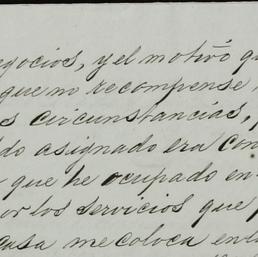 egocios, y el motivó q
que no recompense
s circunstancias,
do asignado era con
que he ocupado en
or los servicios que
casa me coloca en la